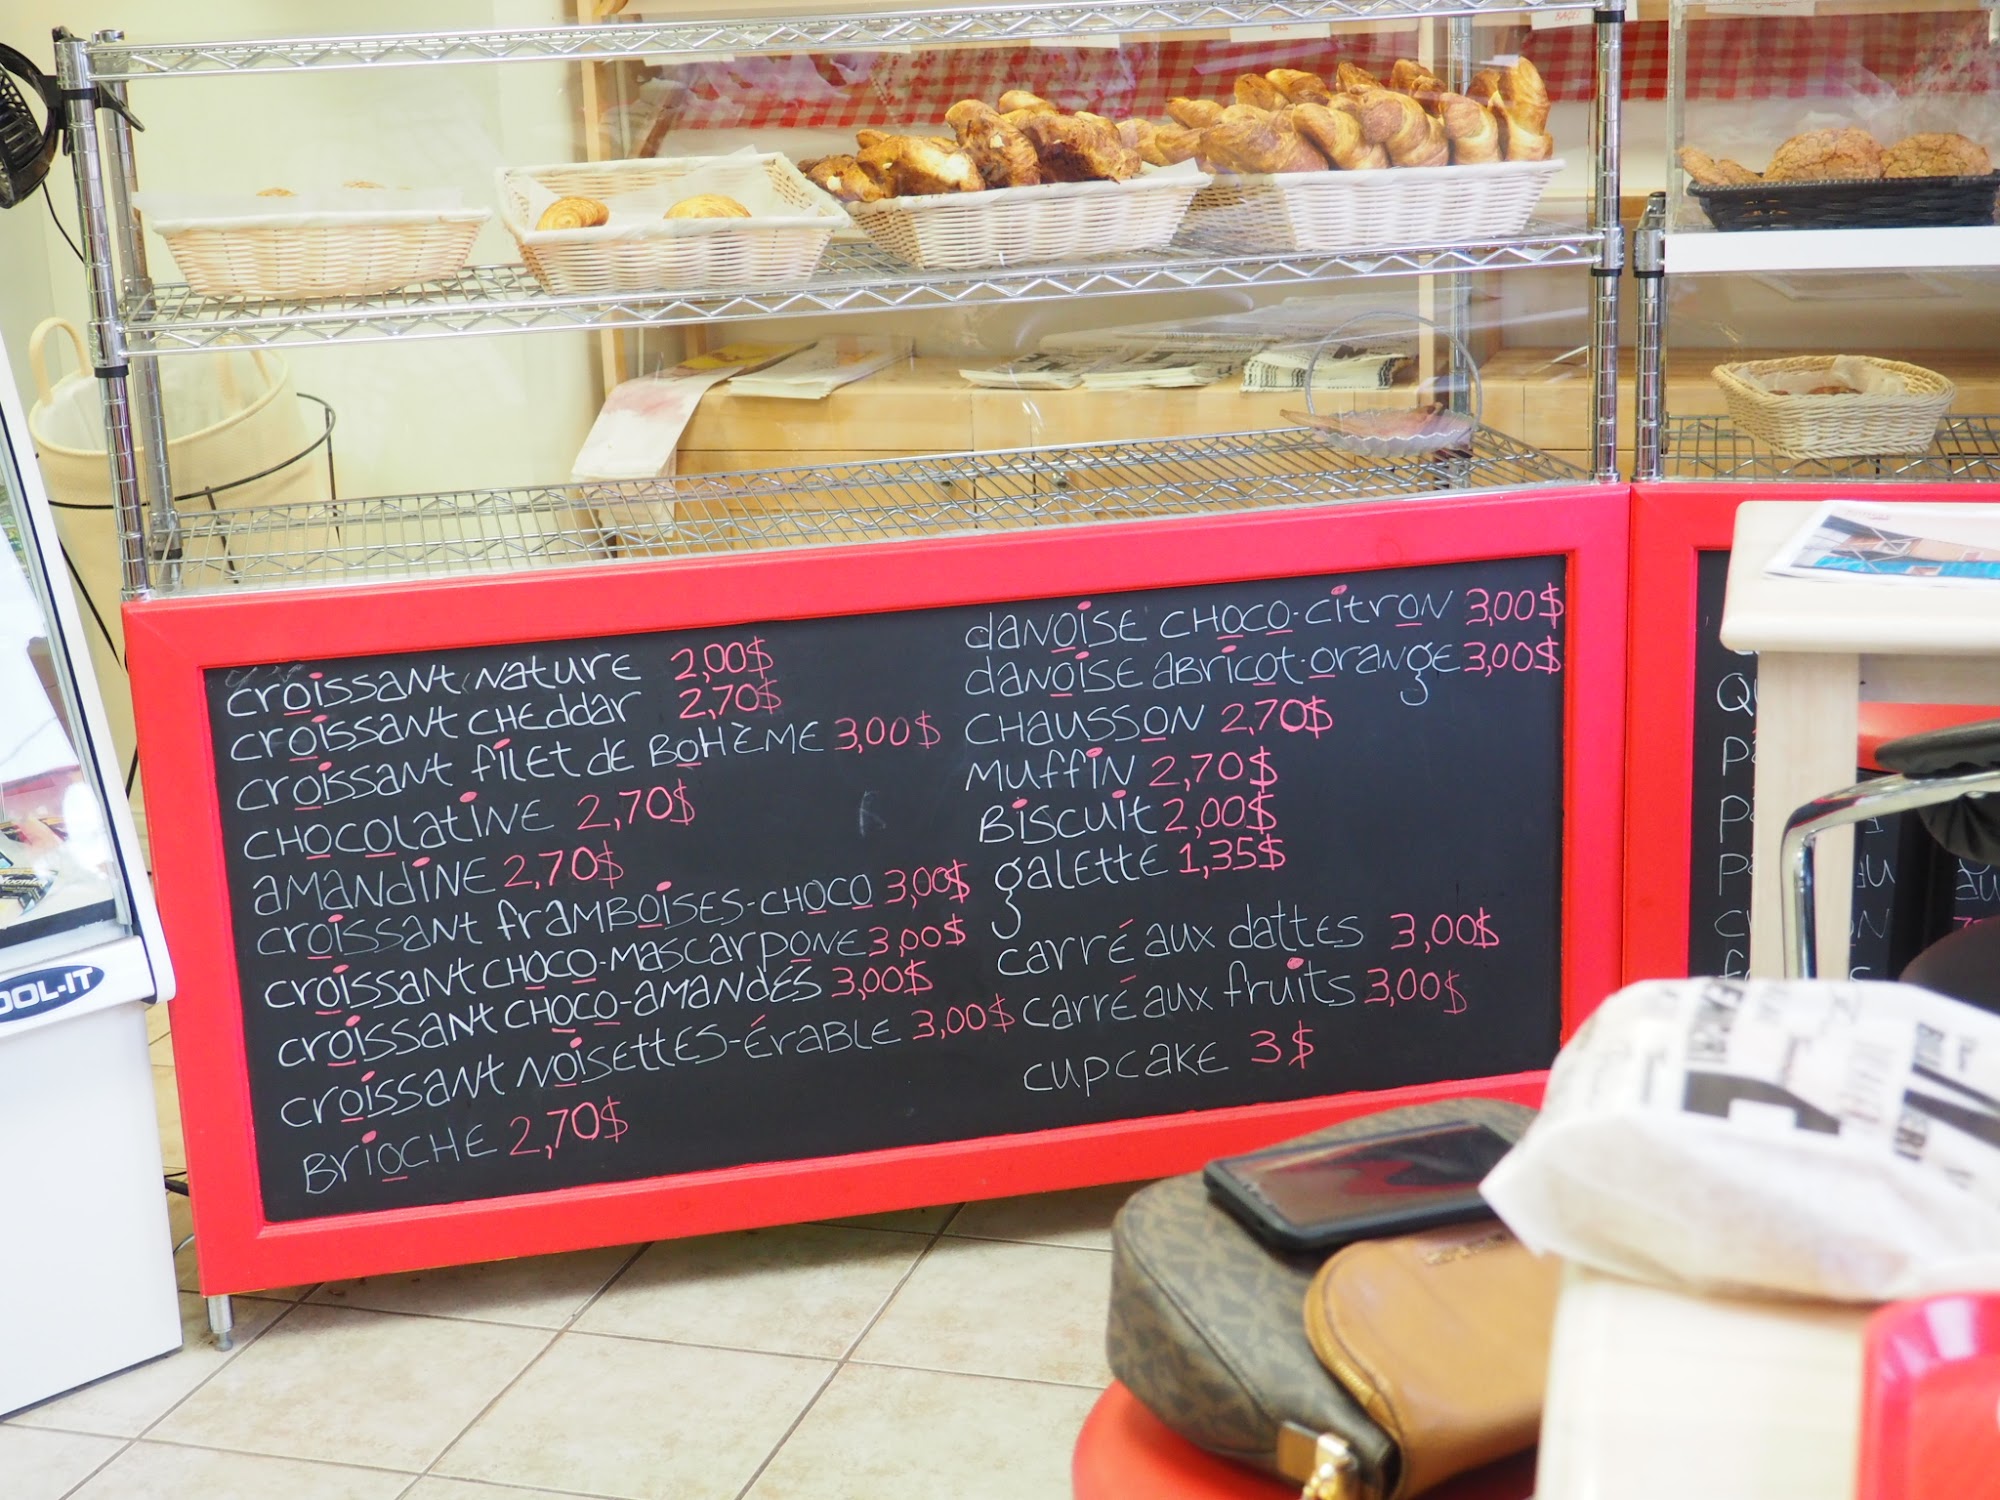 croissant nature 2,00$
croissant cheddar 2,70$
croissant filet de Bohème 3,00$
chocolatine 2,70$
amandine 2,70$
croissant framboises-choco 3,00$
croissant choco-mascarpone 3,00$
croissant choco-amandes 3,00$
croissant noisettes-érable 3,00$
Brioche 2,70$
danoise choco-citron 3,00$
danoise abricot-orange 3,00$
chausson 2,70$
muffin 2,70$
Biscuit 2,00$
galette 1,35$
carré aux dattes 3,00$
carré aux fruits 3,00$
cupcake 3$
OOL-IT